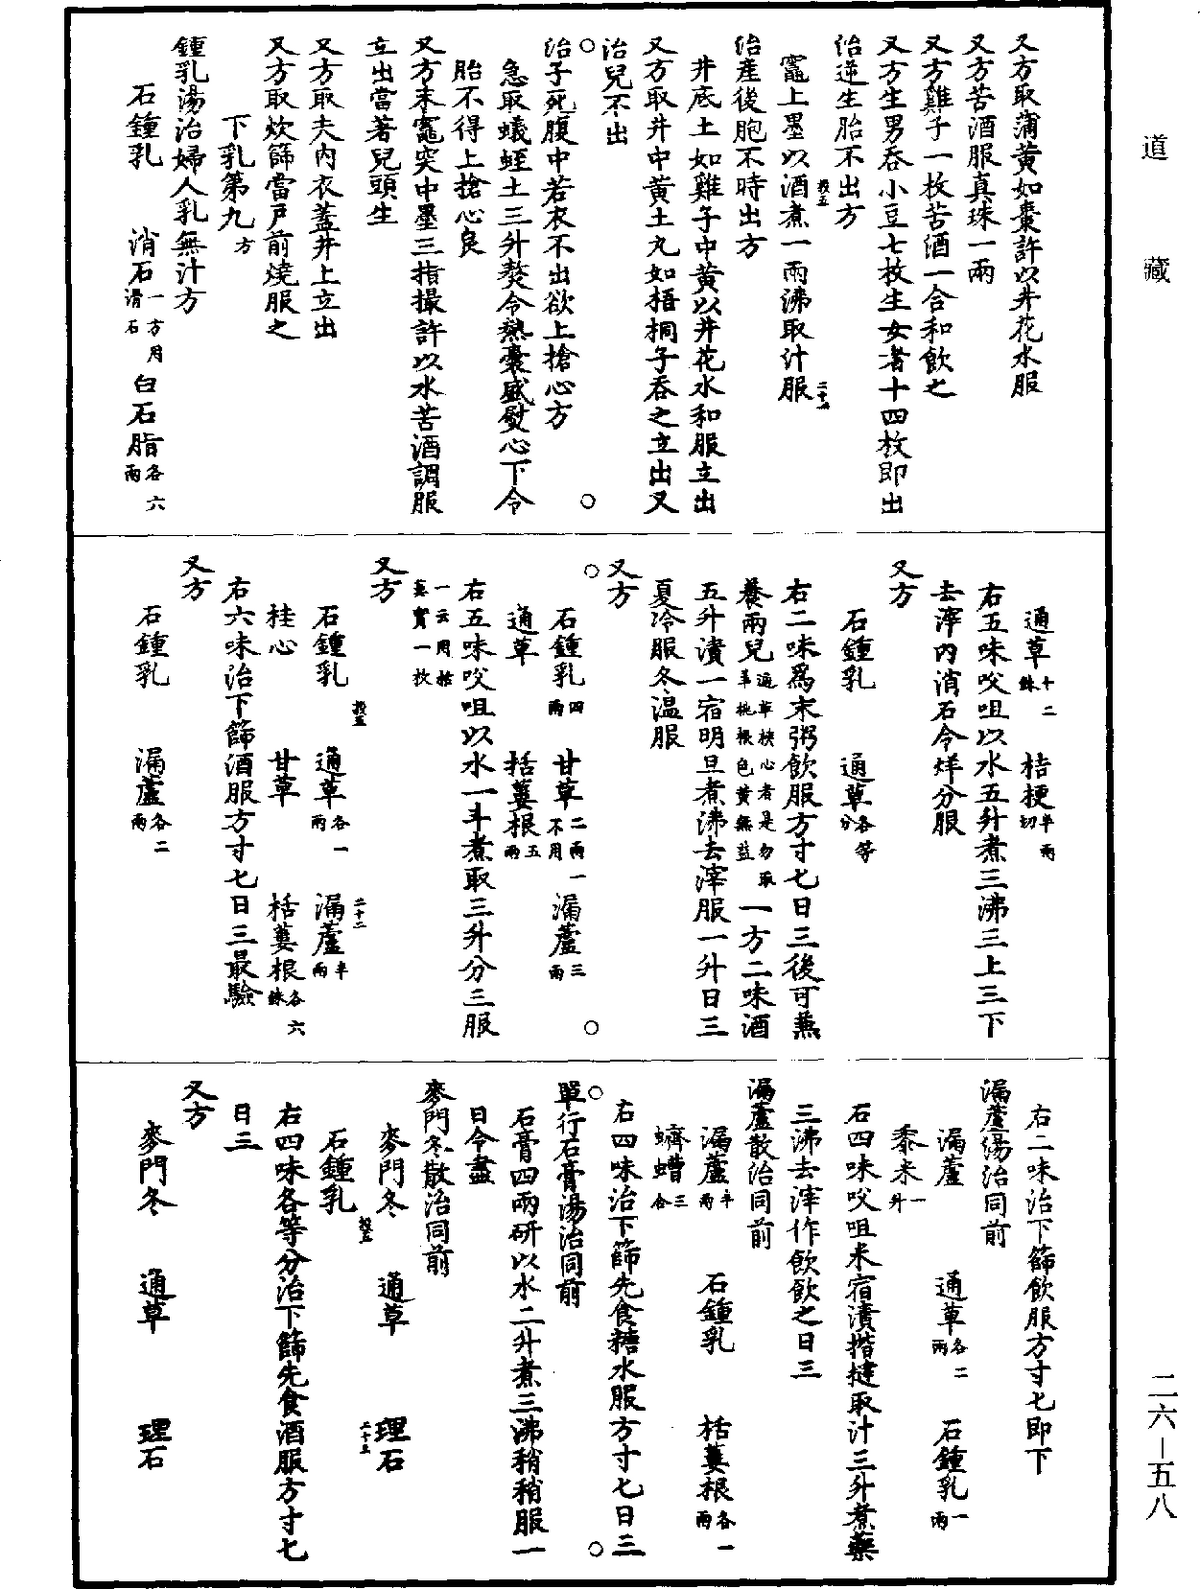 道藏
又方取蒲黃如棗許以井花水服
又方苦酒服真珠一兩
又方雞子一枚苦酒一合和飲之
又方生男吞小豆七枚生女者十四枚即出
治逆生胎不出方
竈上墨以酒煮一兩沸取汁服
治產後胞不時出方
井底土如雞子中黃以井花水和服立出
又方取井中黃土丸如梧桐子吞之立出又
治兒不出
治子死腹中若衣不出欲上搶心方
急取蟻蛭土三升熬令熱囊盛熨心下令
胎不得上搶心良
又方末竈突中墨三指撮許以水苦酒調服
立出當著兒頭生
又方取夫內衣蓋井上立出
又方取炊篩當戶前燒服之
下乳第九方
鍾乳湯治婦人乳無汁方
石鍾乳 消石一方用滑石 白石脂各六兩
通草十二銖 桔梗半兩切
右五味㕮咀以水五升煮三沸三上三下
去滓內消石令烊分服
又方
石鍾乳 通草各等分
右二味爲末粥飲服方寸匕日三後可兼
養兩兒通草挾心者是勿取羊桃根色黃無益一方二味酒
五升漬一宿明旦煮沸去滓服一升日三
夏冷服冬温服
又方
石鍾乳四兩 甘草二兩一不用 漏蘆三兩
通草 括蔞根五兩
右五味㕮咀以水一斗煮取三升分三服
一云用栝蔞實一枚
又方
石鍾乳 通草各一兩 漏蘆半兩
桂心 甘草 栝蔞根各六銖
右六味治下篩酒服方寸匕日三最驗
又方
石鍾乳 漏蘆各二兩
右二味治下篩飲服方寸匕即下
漏蘆湯治同前
漏蘆 通草各二兩 石鍾乳一兩
黍米一升
右四味㕮咀米宿漬揩撻取汁三升煮藥
三沸去滓作飲飲之日三
漏蘆散治同前
漏蘆半兩 石鍾乳 栝蔞根各一兩
蠐螬三合
右四味治下篩先食糖水服方寸匕日三
單行石膏湯治同前
石膏四兩研以水二升煮三沸稍稍服一
日令盡
麥門冬散治同前
麥門冬 通草 理石
石鍾乳
右四味各等分治下篩先食酒服方寸匕
日三
又方
麥門冬 通草 理石
二六－五八